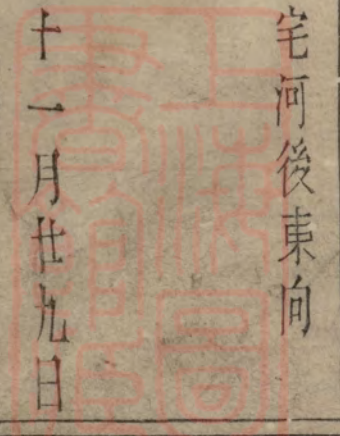 宅河後東向
十一月廿九日